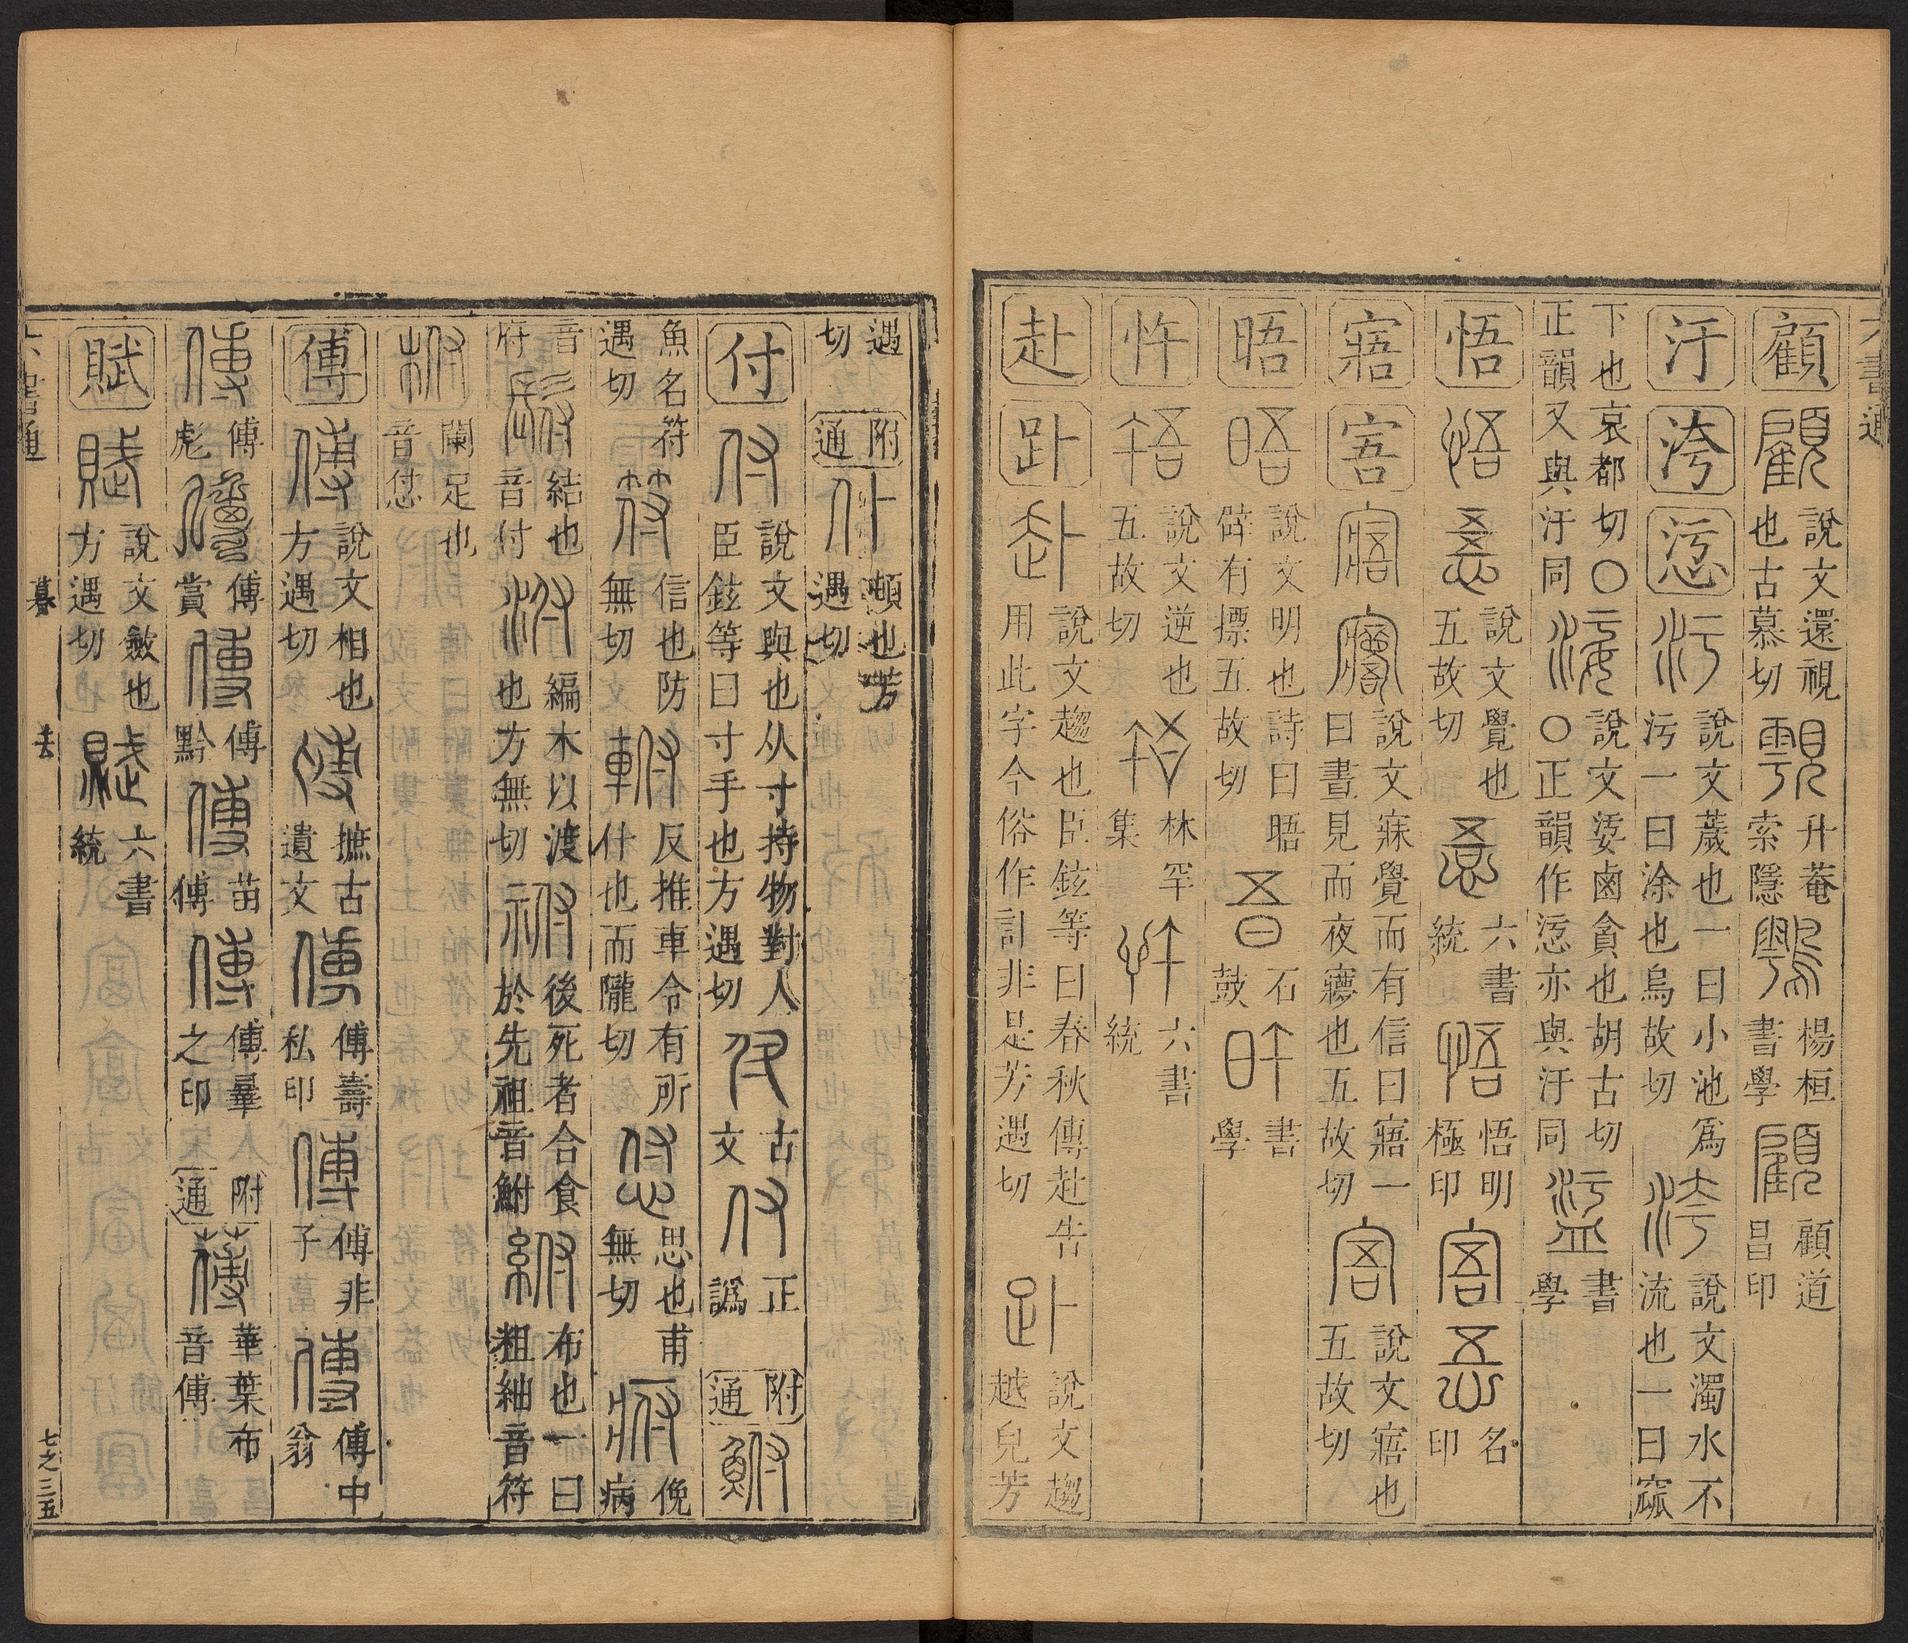 六書通
顧 顧 說文還視也古慕切 升菴索隱 楊桓書學 顧道昌印
汙 洿 㤲 汙 說文薉也一曰小池爲汚一曰涂也烏故切 洿 說文濁水不流也一曰窳
下也哀都切〇正韻又與汙同 說文婟鹵貪也胡古切〇正韻作㤲亦與汙同 書學
悟 悟 說文覺也五故切 六書統 悟明極印 名印
寤 㝛 說文寐覺而有信曰寤一曰晝見而夜寢也五故切 說文寤也五故切
晤 晤 說文明也詩曰晤辟有摽五故切 石鼓 書學
忤 啎 說文逆也五故切 林罕集 六書統
赴 𧿒 赴 說文趨也臣鉉等曰春秋傳赴告用此字今俗作訃非是芳遇切 說文趨越皃芳
遇切 附通 仆 頓也芳遇切
付 付 說文與也从寸持物對人臣鉉等曰寸手也方遇切 古文 正譌 附通 鮒
魚名符遇切 苻 信也防無切 軵 反推車令有所什也而隴切 思也甫無切 府 俛病
音府 結也音付 泭 編木以渡也方無切 祔 後死者合食於先祖音鮒 紨 布也一曰粗紬音符
柎 闌足也音怤
傅 傅 說文相也方遇切 摭古遺文 傅壽私印 傅非子 傅中翁
傅彪 傅賞 傅黔 苗傅 傅羣之印 附通 蒪 華葉布音傅
賦 賦 說文斂也方遇切 六書統
六書通 暮 去 七之三五